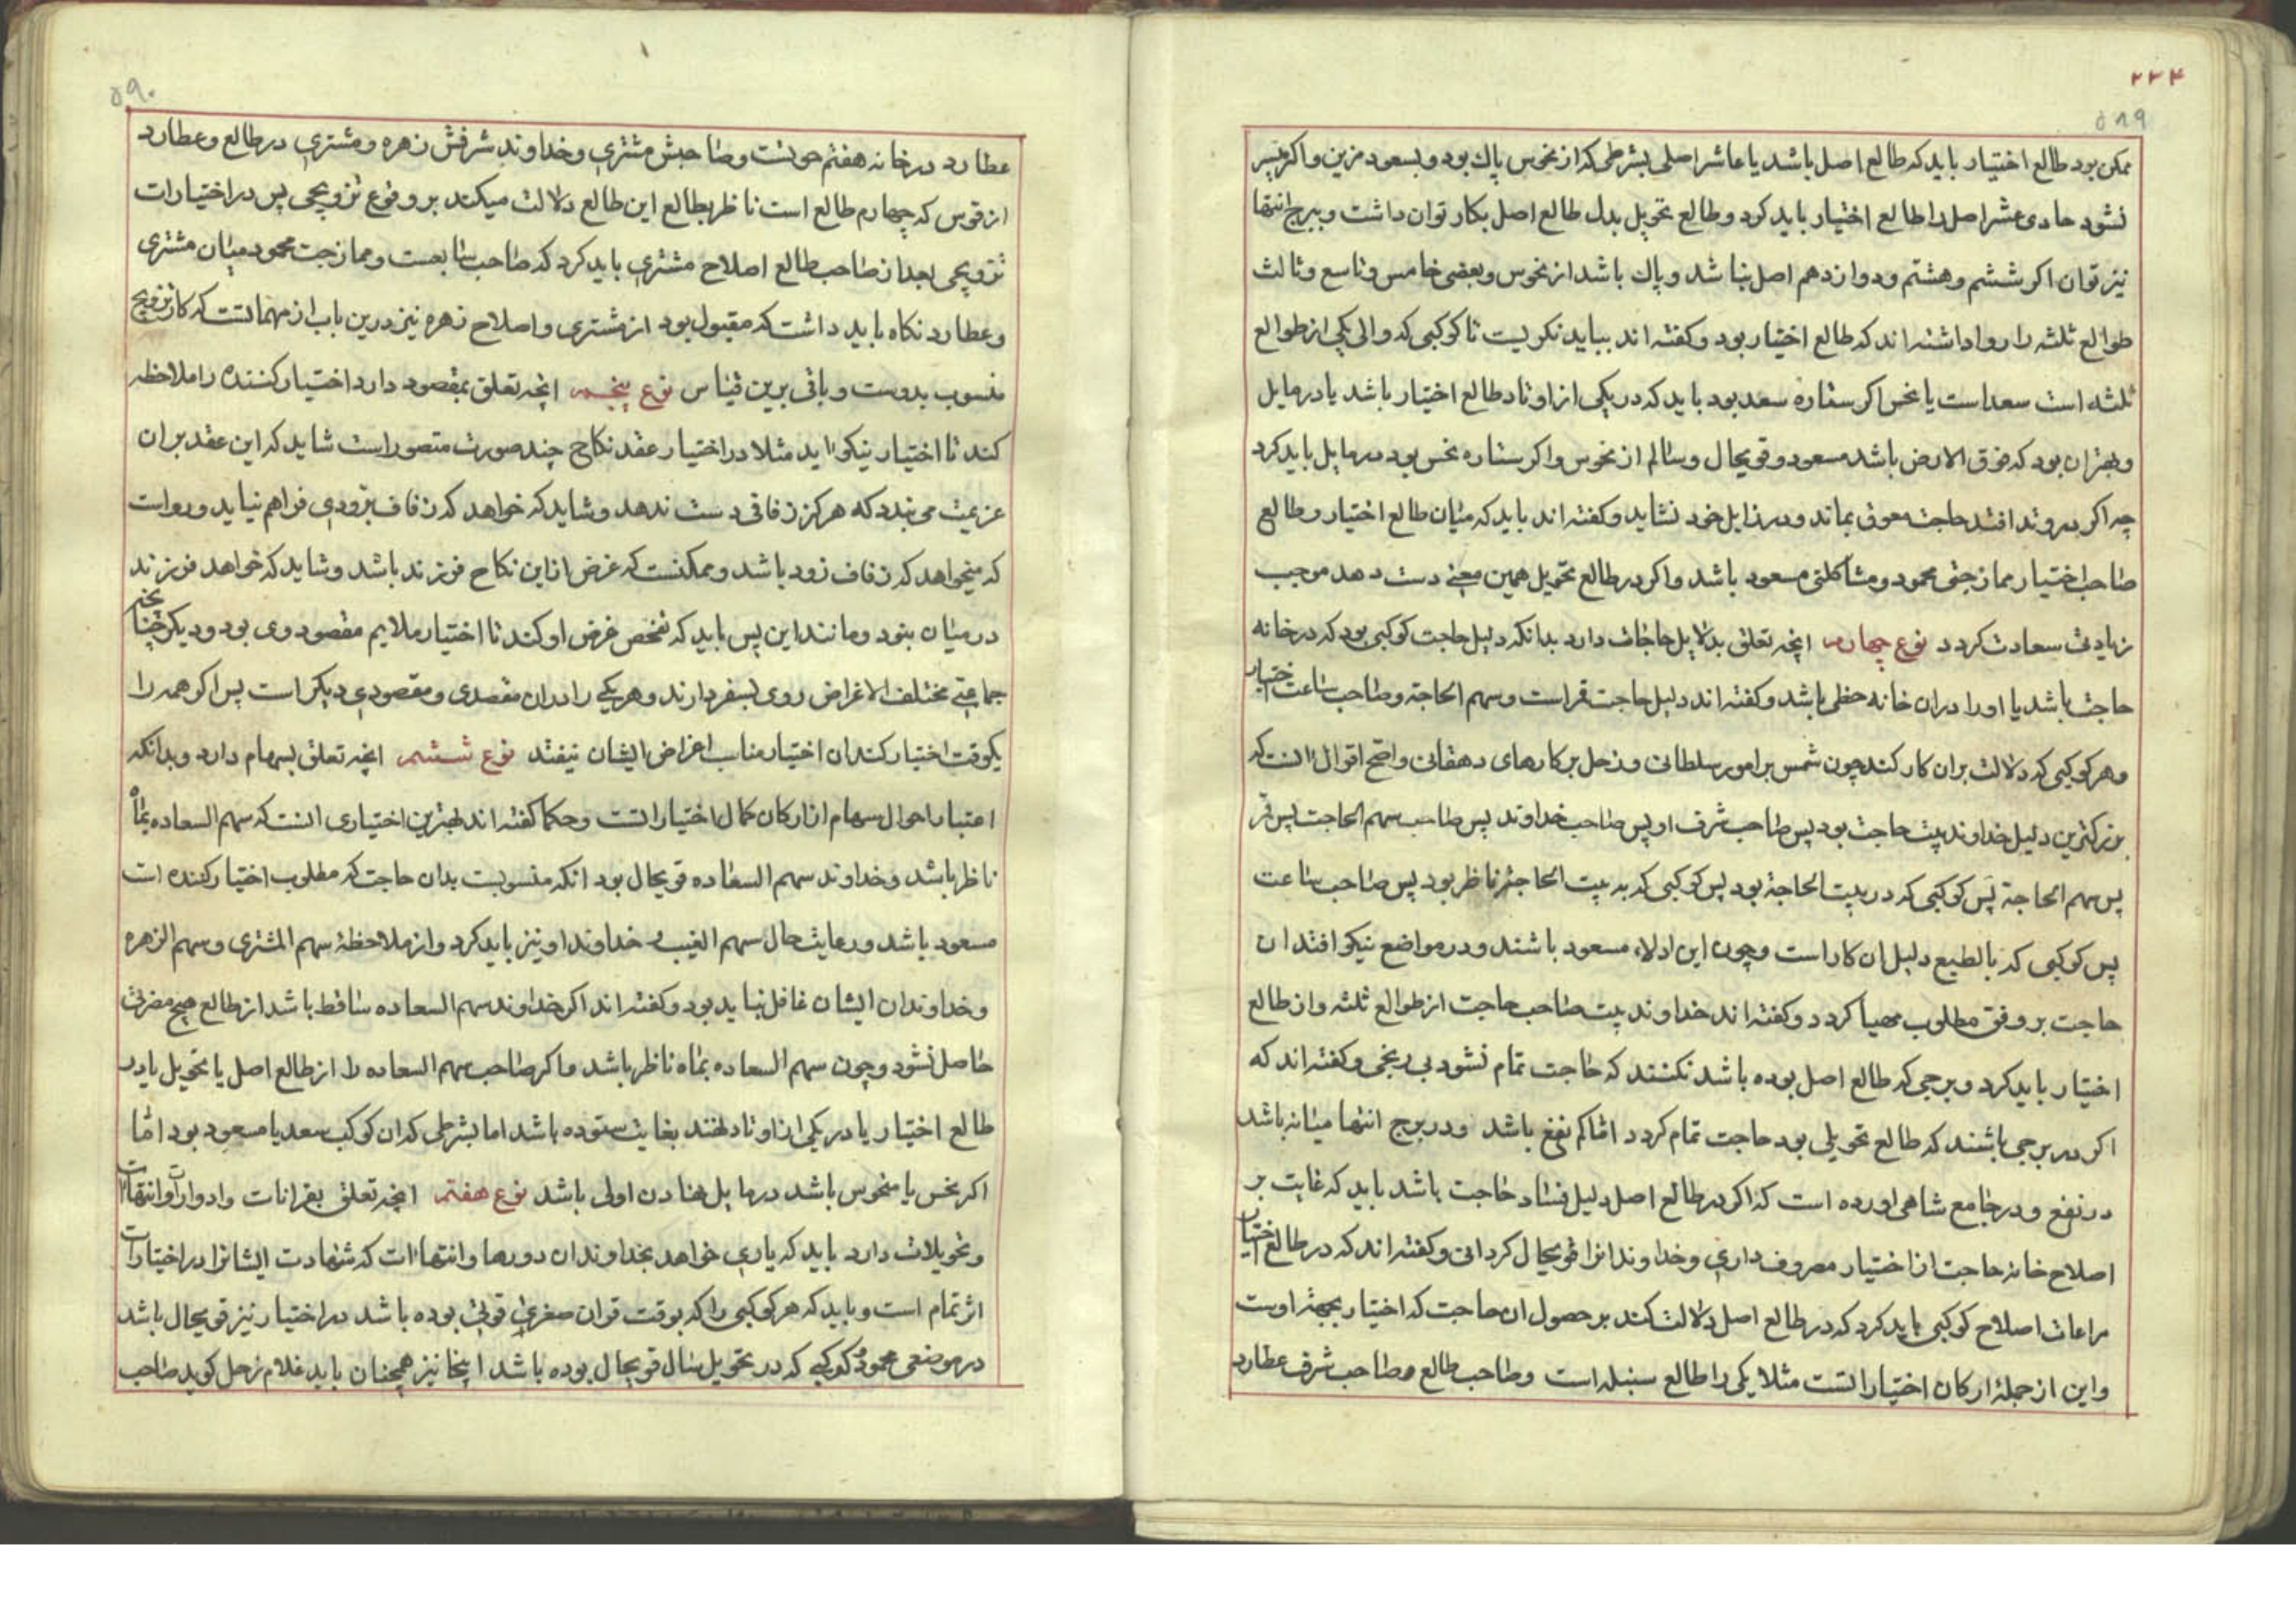 ۲۲۴
۵۸۹
ممکن بود طالع اختیار باید که طالع اصل باشد یا عاشر اصلی بشرطی که از نحوس پاک بود و بسعود مزین و اکر میسر
نشود حادی عشر اصل را طالع اختیار باید کرد و طالع تحویل بدل طالع اصل بکار توان داشت و ببرج انتها
نیز توان اکر ششم و هشتم و دوازدهم اصل نباشد و پاک باشد از نحوس و بعضی خامس و تاسع و ثالث
طوالع ثلثه را روا داشته اند که طالع اختیار بود و کفته اند بباید نکریست تا کوکبی که والی یکی از طوالع
ثلثه است سعد است یا نحس اکر ستاره سعد بود باید که در یکی از اوتاد طالع اختیار باشد یا در مایل
و بهتر ان بود که فوق الارض باشد مسعود و قویحال و سالم از نحوس و اکر ستاره نحس بود در مایل باید کرد
چه اکر در وتد افتد حاجت معوق بماند و در زایل خود نشاید و کفته اند باید که میان طالع اختیار و طالع
صاحب اختیار ممازجتی محمود و مشاکلتی مسعود باشد و اکر در طالع تحویل همین معنی دست دهد موجب
زیادتی سعادت کردد نوع چهارم انچه تعلق بدلایل حاجات دارد بدانکه دلیل حاجت کوکبی بود که در خانه
حاجت باشد یا او را دران خانه حظی باشد و کفته اند دلیل حاجت قمر است و سهم الحاجة و صاحب ساعت اختیار
و هر کوکبی که دلالت بران کار کند چون شمس بر امور سلطانی و زحل بر کارهای دهقانی و اصح اقوال انست که
بزرکترین دلیل خداوند بیت حاجت بود پس صاحب شرف او پس صاحب خداوند پس صاحب سهم الحاجت پس قمر
پس سهم الحاجة پس کوکبی که در بیت الحاجة بود پس کوکبی که به بیت الحاجة ناظر بود پس صاحب ساعت
پس کوکبی که بالطبع دلیل ان کار است و چون این ادلاء مسعود باشند و در مواضع نیکو افتند ان
حاجت بر وفق مطلوب مهیا کردد و کفته اند خداوند بیت صاحب حاجت از طوالع ثلثه و از طالع
اختیار باید کرد و برجی که طالع اصل بوده باشد نکنند که حاجت تمام نشود بی رنجی و کفته اند که
اکر در برجی باشند که طالع تحویلی بود حاجت تمام کردد اما کم نفع باشد و در برج انتها میانه باشد
در نفع و در جامع شاهی اورده است که اکر در طالع اصل دلیل فساد حاجت باشد باید که غایت بر
اصلاح خانه حاجت از اختیار مصروف داری و خداوندانرا قویحال کردانی و کفته اند که در طالع اختیار
مراعات اصلاح کوکبی باید کرد که در طالع اصل دلالت کند بر حصول ان حاجت که اختیار بجهة اوست
و این از جملهٔ ارکان اختیاراتست مثلا یکی را طالع سنبله است و صاحب طالع و صاحب شرف عطارد
۵۹۰
عطارد در خانه هفتم حوتست و صاحبش مشتری و خداوند شرفش زهره و مشتری در طالع و عطارد
از قوس که چهارم طالع است ناظر بطالع این طالع دلالت میکند بر وقوع تزویجی پس در اختیارات
تزویجی بعد از صاحب طالع اصلاح مشتری باید کرد که صاحب سابعست و ممازجت محمود میان مشتری
و عطارد نکاه باید داشت که مقبول بود از مشتری و اصلاح زهره نیز درین باب از مهماتست که کار تزویج
منسوب بدوست و باقی برین قیاس نوع پنجم انچه تعلق بمقصود دارد اختیار کننده را ملاحظه
کند تا اختیار نیکو اید مثلا در اختیار عقد نکاح چند صورت متصور است شاید که این عقد بران
عزیمت می بندد که هرکز زفافی دست ندهد و شاید که خواهد که زفاف بزودی فراهم نیاید و رواست
که میخواهد که زفاف زود باشد و ممکنست که غرض از این نکاح فرزند باشد و شاید که خواهد فرزند
در میان بنود و مانند این پس باید که تفحص غرض او کند تا اختیار ملایم مقصود وی بود و دیکر چنانچه
جماعتی مختلف الاغراض روی بسفر دارند و هر یکی را دران مقصدی و مقصودی دیکر است پس اکر همه را
یکوقت اختیار کند ان اختیار مناسب اغراض ایشان نیفتد نوع ششم انچه تعلق بسهام دارد و بدانکه
اعتبار احوال سهام از ارکان کمال اختیاراتست و حکما کفته اند بهترین اختیاری انست که سهم السعاده بماه
ناظر باشد و خداوند سهم السعاده قویحال بود انکه منسوبست بدان حاجت که مطلوب اختیار کننده است
مسعود باشد و رعایت حال سهم الغیب و خداوند او نیز باید کرد و از ملاحظهٔ سهم المشتری و سهم الزهره
و خداوندان ایشان غافل نباید بود و کفته اند اکر خداوند سهم السعاده ساقط باشد از طالع هیچ مضرتی
حاصل نشود چون سهم السعاده بماه ناظر باشد و اکر صاحب سهم السعاده را از طالع اصل یا تحویل یا در
طالع اختیار یا در یکی از اوتاد نهند بغایت ستوده باشد اما بشرطی که ان کوکب سعد یا مسعود بود اما
اکر نحس یا منحوس باشد در مایل نهادن اولی باشد نوع هفتم انچه تعلق بقرانات و ادوارات و انتهاات
و تحویلات دارد باید که یاری خواهد بخداوندان دورها و انتهاات که شهادت ایشانرا در اختیارات
اثر تمام است و باید که هر کوکبی را که بوقت قران صغری قوتی بوده باشد در اختیار نیز قویحال باشد
در موضعی محمود و کوکبی که در تحویل سال قویحال بوده باشد اینجا نیز همچنان باید غلام زحل کوید صاحب